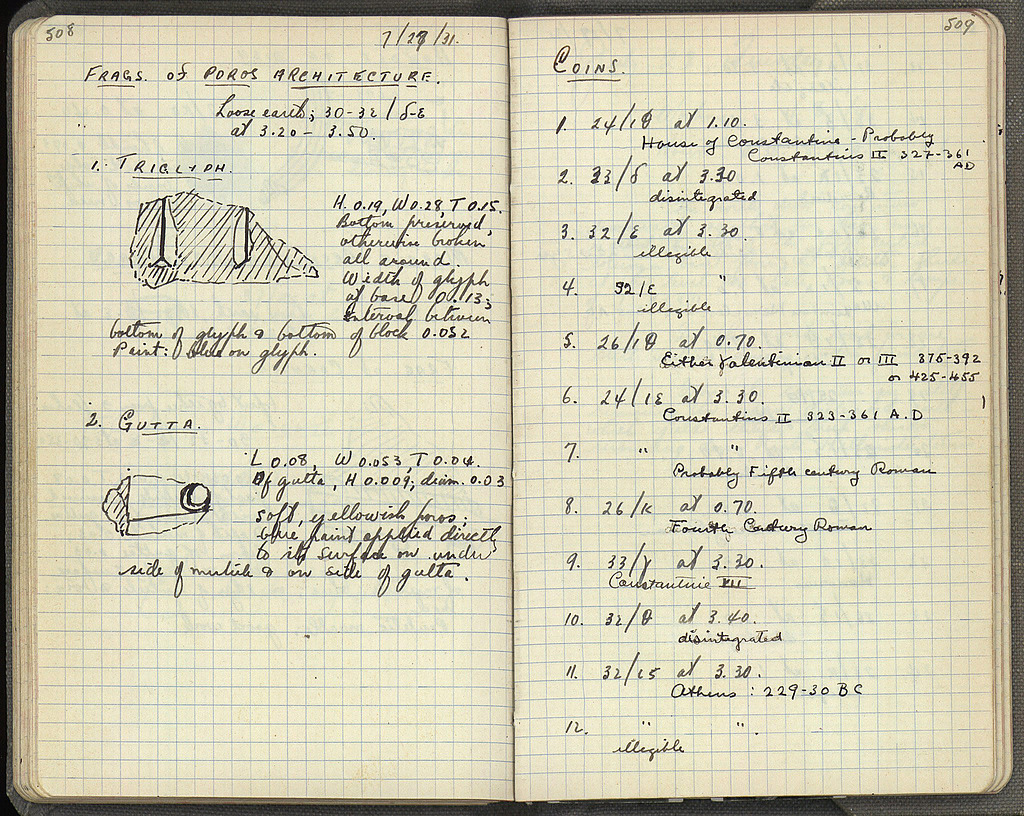 508
7/27/31.
FRAGS. of POROS ARCHITECTURE.
Loose earth; 30-32/δ-ε
at 3.20 - 3.50.
1. TRIGLYPH.
H. 0.19, W 0.28, T 0.15.
Bottom preserved,
otherwise broken
all around.
Width of glyph
at base 0.13;
interval between
bottom of glyph & bottom of block 0.052
Paint: blue on glyph.
2. GUTTA.
L 0.08, W 0.053, T 0.04.
Of gutta, H 0.009; diam. 0.03
Soft, yellowish poros;
blue paint applied directly
to its surface on under
side of mutule & on side of gutta.
509
COINS.
1. 24/ιθ at 1.10.
House of Constantine - Probably
Constantius II 327-361
AD
2. 33/δ at 3.30
disintegrated
3. 32/ε at 3.30.
illegible
4. 32/ε "
illegible
5. 26/ιθ at 0.70.
Either Valentinian II or III 375-392
or 425-455
6. 24/ιε at 3.30.
Constantius II 323-361 A.D
7. " "
Probably Fifth century Roman
8. 26/κ at 0.70.
Fourth Century Roman
9. 33/γ at 3.30.
Constantine VII
10. 32/θ at 3.40.
disintegrated
11. 32/ις at 3.30.
Athens : 229-30 BC
12. " ".
illegible